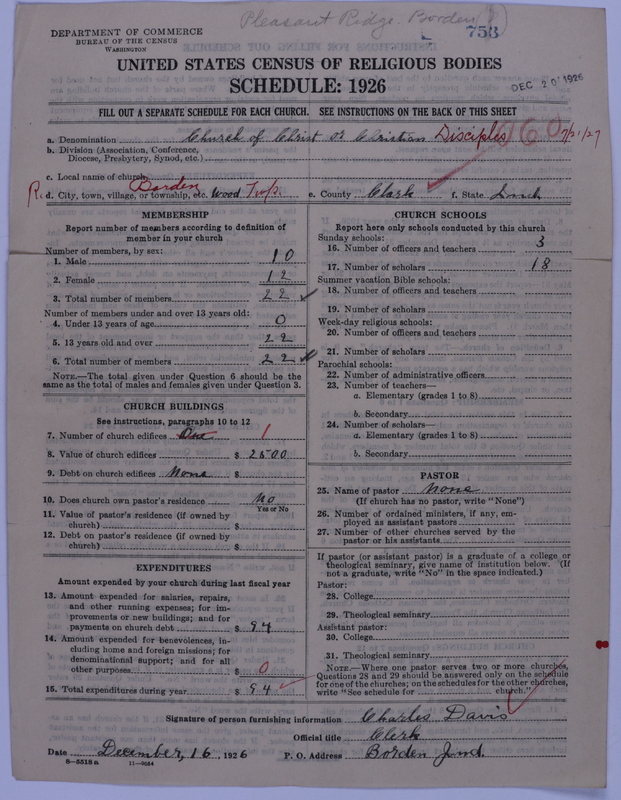 Pleasant Ridge. Borden
753
DEPARTMENT OF COMMERCE
BUREAU OF THE CENSUS
WASHINGTON
UNITED STATES CENSUS OF RELIGIOUS BODIES
SCHEDULE: 1926
DEC 20 1926
FILL OUT A SEPARATE SCHEDULE FOR EACH CHURCH. SEE INSTRUCTIONS ON THE BACK OF THIS SHEET
a. Denomination Church of Christ or Christian Disciples 160 7/21/27
b. Division (Association, Conference,
Diocese, Presbytery, Synod, etc.)
c. Local name of church
R. d. City, town, village, or township, etc. Borden Wood Twp. e. County Clark f. State Ind
MEMBERSHIP
Report number of members according to definition of
member in your church
Number of members, by sex:
1. Male 10
2. Female 12
3. Total number of members 22
Number of members under and over 13 years old:
4. Under 13 years of age 0
5. 13 years old and over 22
6. Total number of members 22
NOTE.—The total given under Question 6 should be the
same as the total of males and females given under Question 3.
CHURCH BUILDINGS
See instructions, paragraphs 10 to 12
7. Number of church edifices One 1
8. Value of church edifices $ 2500
9. Debt on church edifices None
10. Does church own pastor's residence No
Yes or No
11. Value of pastor's residence (if owned by
church) $
12. Debt on pastor's residence (if owned by
church) $
EXPENDITURES
Amount expended by your church during last fiscal year
13. Amount expended for salaries, repairs,
and other running expenses; for im-
provements or new buildings; and for
payments on church debt $ 94
14. Amount expended for benevolences, in-
cluding home and foreign missions; for
denominational support; and for all
other purposes $ 0
15. Total expenditures during year $ 94
CHURCH SCHOOLS
Report here only schools conducted by this church
Sunday schools:
16. Number of officers and teachers 3
17. Number of scholars 18
Summer vacation Bible schools:
18. Number of officers and teachers
19. Number of scholars
Week-day religious schools:
20. Number of officers and teachers
21. Number of scholars
Parochial schools:
22. Number of administrative officers
23. Number of teachers—
a. Elementary (grades 1 to 8)
b. Secondary
24. Number of scholars—
a. Elementary (grades 1 to 8)
b. Secondary
PASTOR
25. Name of pastor None
(If church has no pastor, write "None")
26. Number of ordained ministers, if any, em-
ployed as assistant pastors
27. Number of other churches served by the
pastor or his assistants
If pastor (or assistant pastor) is a graduate of a college or
theological seminary, give name of institution below. (If
not a graduate, write "No" in the space indicated.)
Pastor:
28. College
29. Theological seminary
Assistant pastor:
30. College
31. Theological seminary
NOTE.—Where one pastor serves two or more churches,
Questions 28 and 29 should be answered only on the schedule
for one of the churches; on the schedules for the other churches,
write "See schedule for church."
Signature of person furnishing information Charles Davis
Official title Clerk
Date December, 16, 1926 P. O. Address Borden Ind.
8—5518 a 11—9054